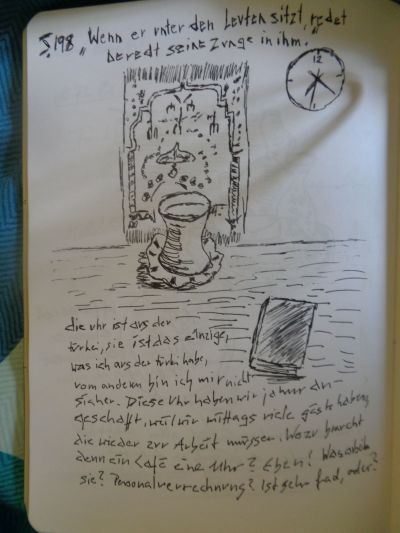 S. 198 „Wenn er unter den Leuten sitzt, redet
beredt seine Zunge in ihm."
12
die Uhr ist aus der
Türkei, sie ist das einzige,
was ich aus der Türkei habe,
vom anderen bin ich mir nicht
sicher. Diese Uhr haben wir ja nur an-
geschafft, weil wir mittags viele Gäste haben,
die wieder zur Arbeit müssen. Wozu braucht
denn ein Café eine Uhr? Eben! Was arbeiten
sie? Personalverrechnung? Ist sehr fad, oder?